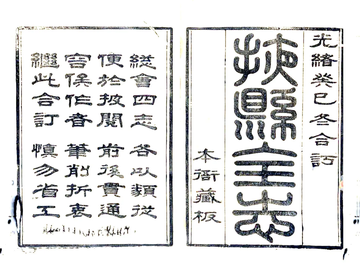 光緒癸巳冬合訂
掖縣全志
本衙藏板
總會四志 各以類從
便於披閱 前後貫通
容俟作者 筆削折衷
繼此合訂 慎勿省工